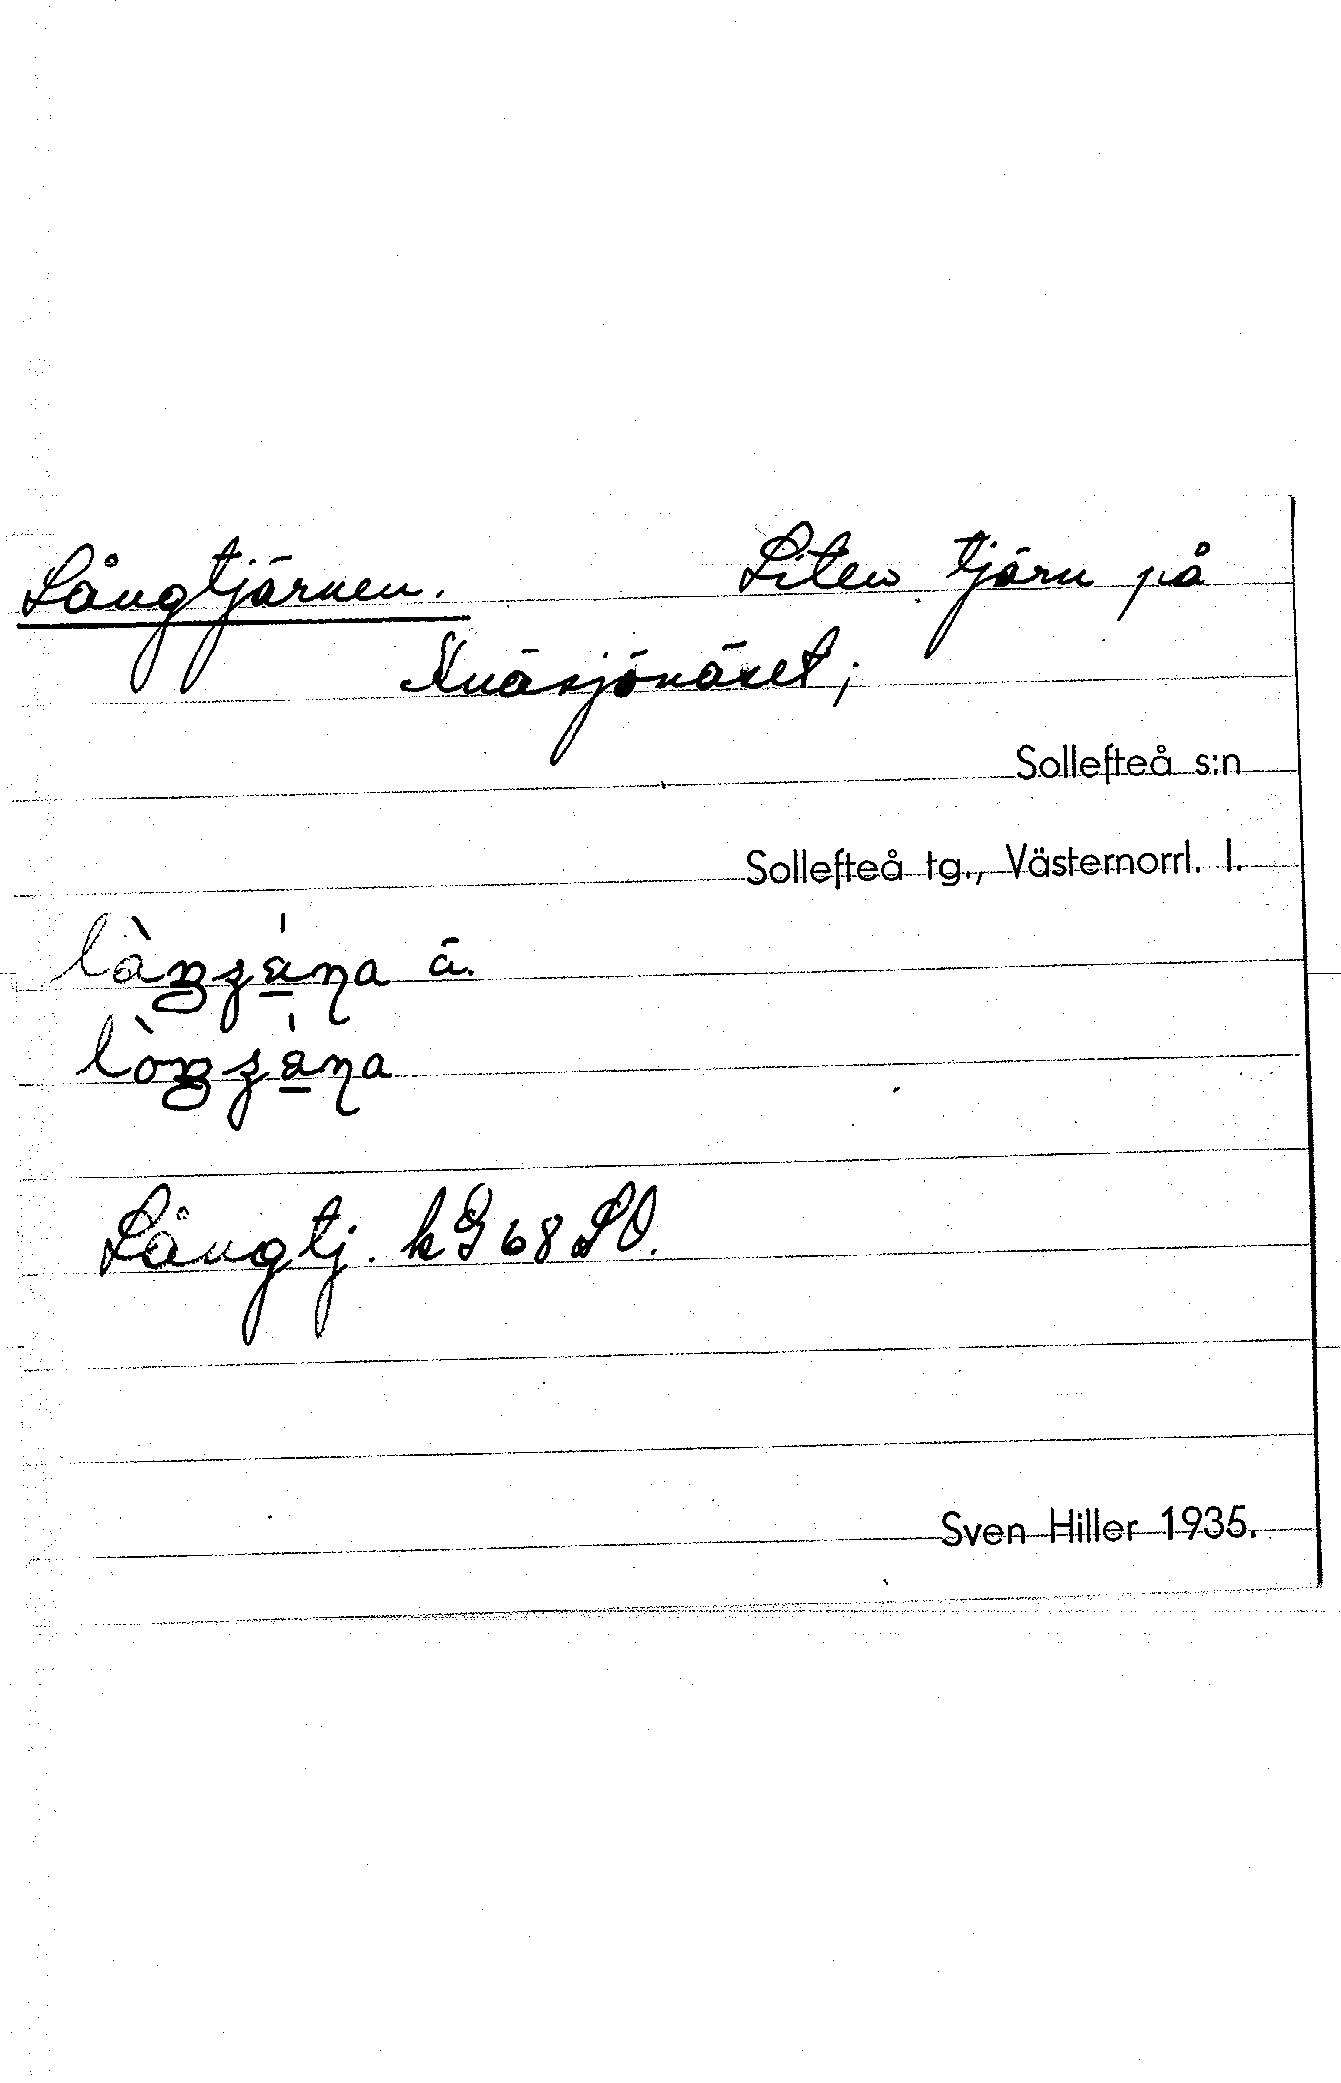 Långtjärnen. Liten tjärn på
Knäsjönäset;
Sollefteå s:n
Sollefteå tg., Västernorrl. l.
ä.
Långtj. kG 68 SO.
Sven Hiller 1935.